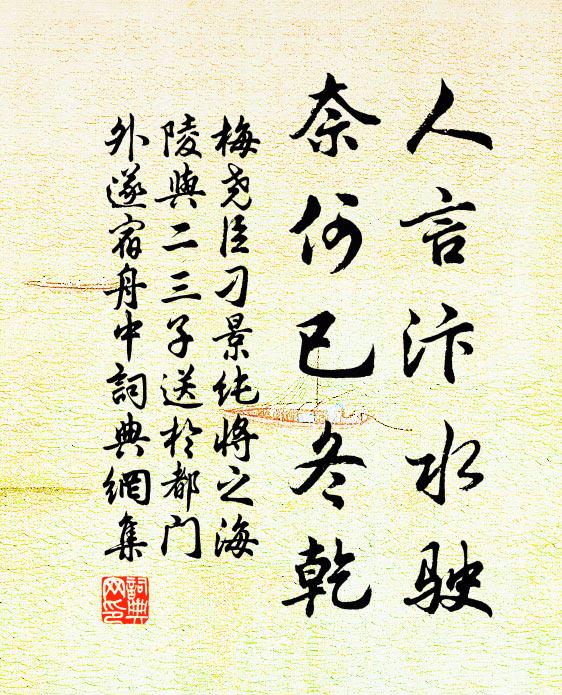 人言汴水駛
奈何已冬乾
梅尧臣刁景纯將之海
陵與二三子送於都门
外遂宿舟中詞典網集
詞典
网印